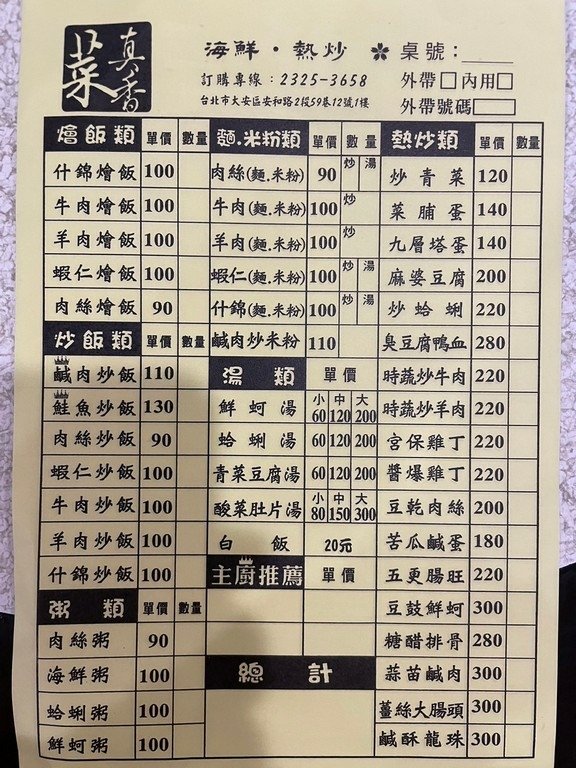 真香
菜
海鮮・熱炒 桌號：
訂購專線：2325-3658 外帶 內用
台北市大安區安和路2段59巷12號1樓 外帶號碼
燴飯類 單價 數量
什錦燴飯 100
牛肉燴飯 100
羊肉燴飯 100
蝦仁燴飯 100
肉絲燴飯 90
炒飯類 單價 數量
鹹肉炒飯 110
鮭魚炒飯 130
肉絲炒飯 90
蝦仁炒飯 100
牛肉炒飯 100
羊肉炒飯 100
什錦炒飯 100
粥類 單價 數量
肉絲粥 90
海鮮粥 100
蛤蜊粥 100
鮮蚵粥 100
麵.米粉類 單價 數量
肉絲(麵.米粉) 90 炒 湯
牛肉(麵.米粉) 100 炒
羊肉(麵.米粉) 100 炒
蝦仁(麵.米粉) 100 炒 湯
什錦(麵.米粉) 100 炒 湯
鹹肉炒米粉 110
湯類 單價
鮮蚵湯 小60 中120 大200
蛤蜊湯 60 120 200
青菜豆腐湯 60 120 200
酸菜肚片湯 小80 中150 大300
白飯 20元
主廚推薦 單價
總計
熱炒類 單價 數量
炒青菜 120
菜脯蛋 140
九層塔蛋 140
麻婆豆腐 200
炒蛤蜊 220
臭豆腐鴨血 280
時蔬炒牛肉 220
時蔬炒羊肉 220
宮保雞丁 220
醬爆雞丁 220
豆乾肉絲 200
苦瓜鹹蛋 180
五更腸旺 220
豆鼓鮮蚵 300
糖醋排骨 280
蒜苗鹹肉 300
薑絲大腸頭 300
鹹酥龍珠 300